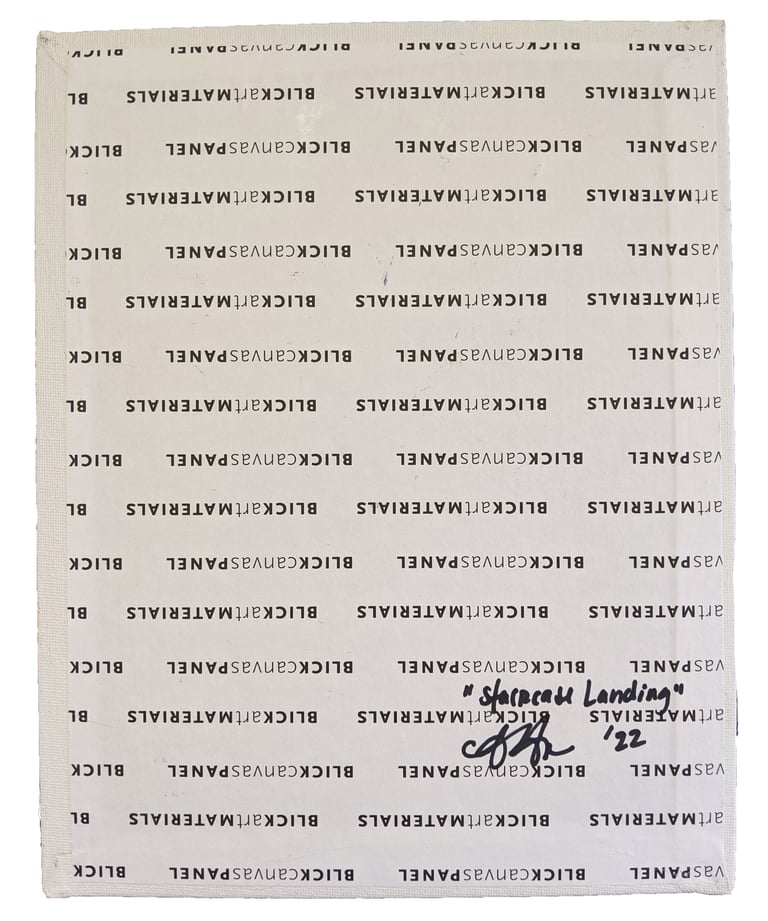 vasPANEL BLICKcanvasPANEL BLICKcanvasPANEL BLICK
artMATERIALS BLICKartMATERIALS BLICKartMATERIALS BL
vasPANEL BLICKcanvasPANEL BLICKcanvasPANEL BLICK
artMATERIALS BLICKartMATERIALS BLICKartMATERIALS BL
vasPANEL BLICKcanvasPANEL BLICKcanvasPANEL BLICK
artMATERIALS BLICKartMATERIALS BLICKartMATERIALS BL
vasPANEL BLICKcanvasPANEL BLICKcanvasPANEL BLICK
artMATERIALS BLICKartMATERIALS BLICKartMATERIALS BL
vasPANEL BLICKcanvasPANEL BLICKcanvasPANEL BLICK
artMATERIALS BLICKartMATERIALS BLICKartMATERIALS BL
vasPANEL BLICKcanvasPANEL BLICKcanvasPANEL BLICK
artMATERIALS BLICKartMATERIALS BLICKartMATERIALS BL
vasPANEL BLICKcanvasPANEL BLICKcanvasPANEL BLICK
"Staircase Landing"
artMATERIALS BLICKartMATERIALS BLICKartMATERIALS BL
'22
vasPANEL BLICKcanvasPANEL BLICKcanvasPANEL BLICK
artMATERIALS BLICKartMATERIALS BLICKartMATERIALS BL
vasPANEL BLICKcanvasPANEL BLICKcanvasPANEL BLICK